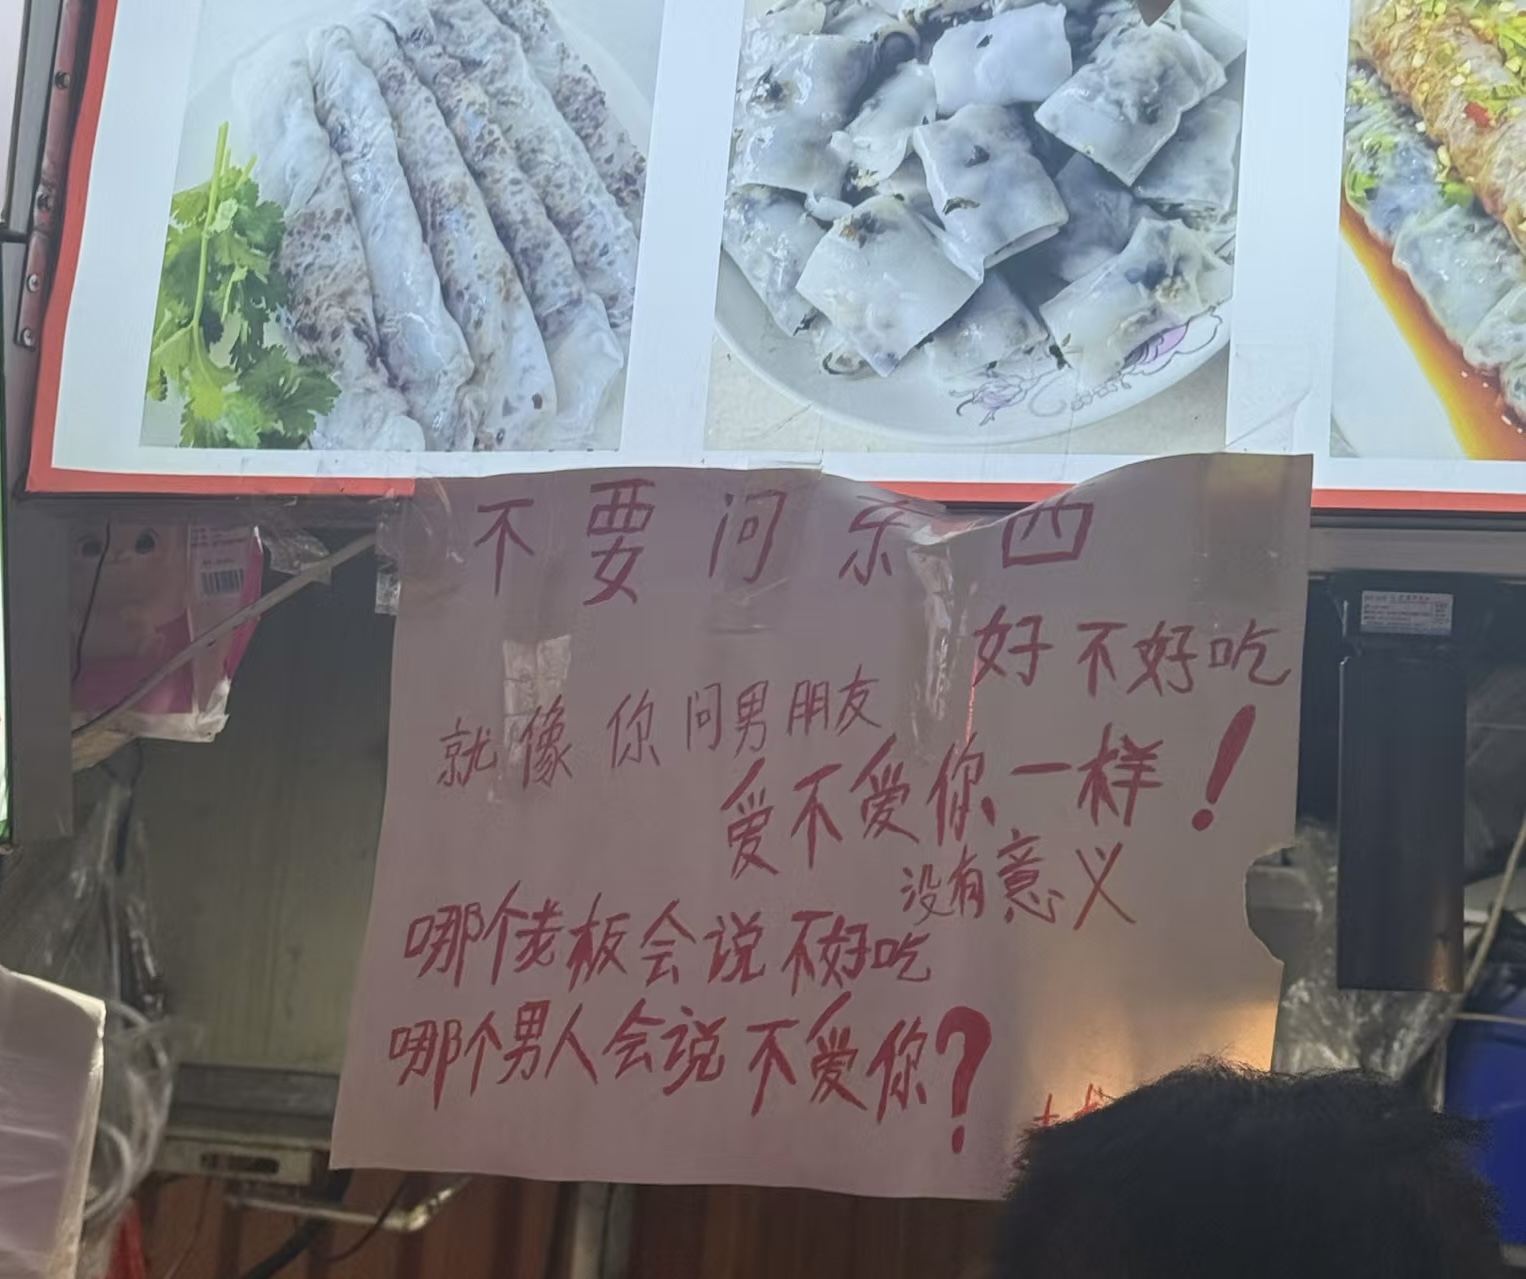 不要问东西
好不好吃
就像你问男朋友
爱不爱你一样！
没有意义
哪个老板会说不好吃
哪个男人会说不爱你？